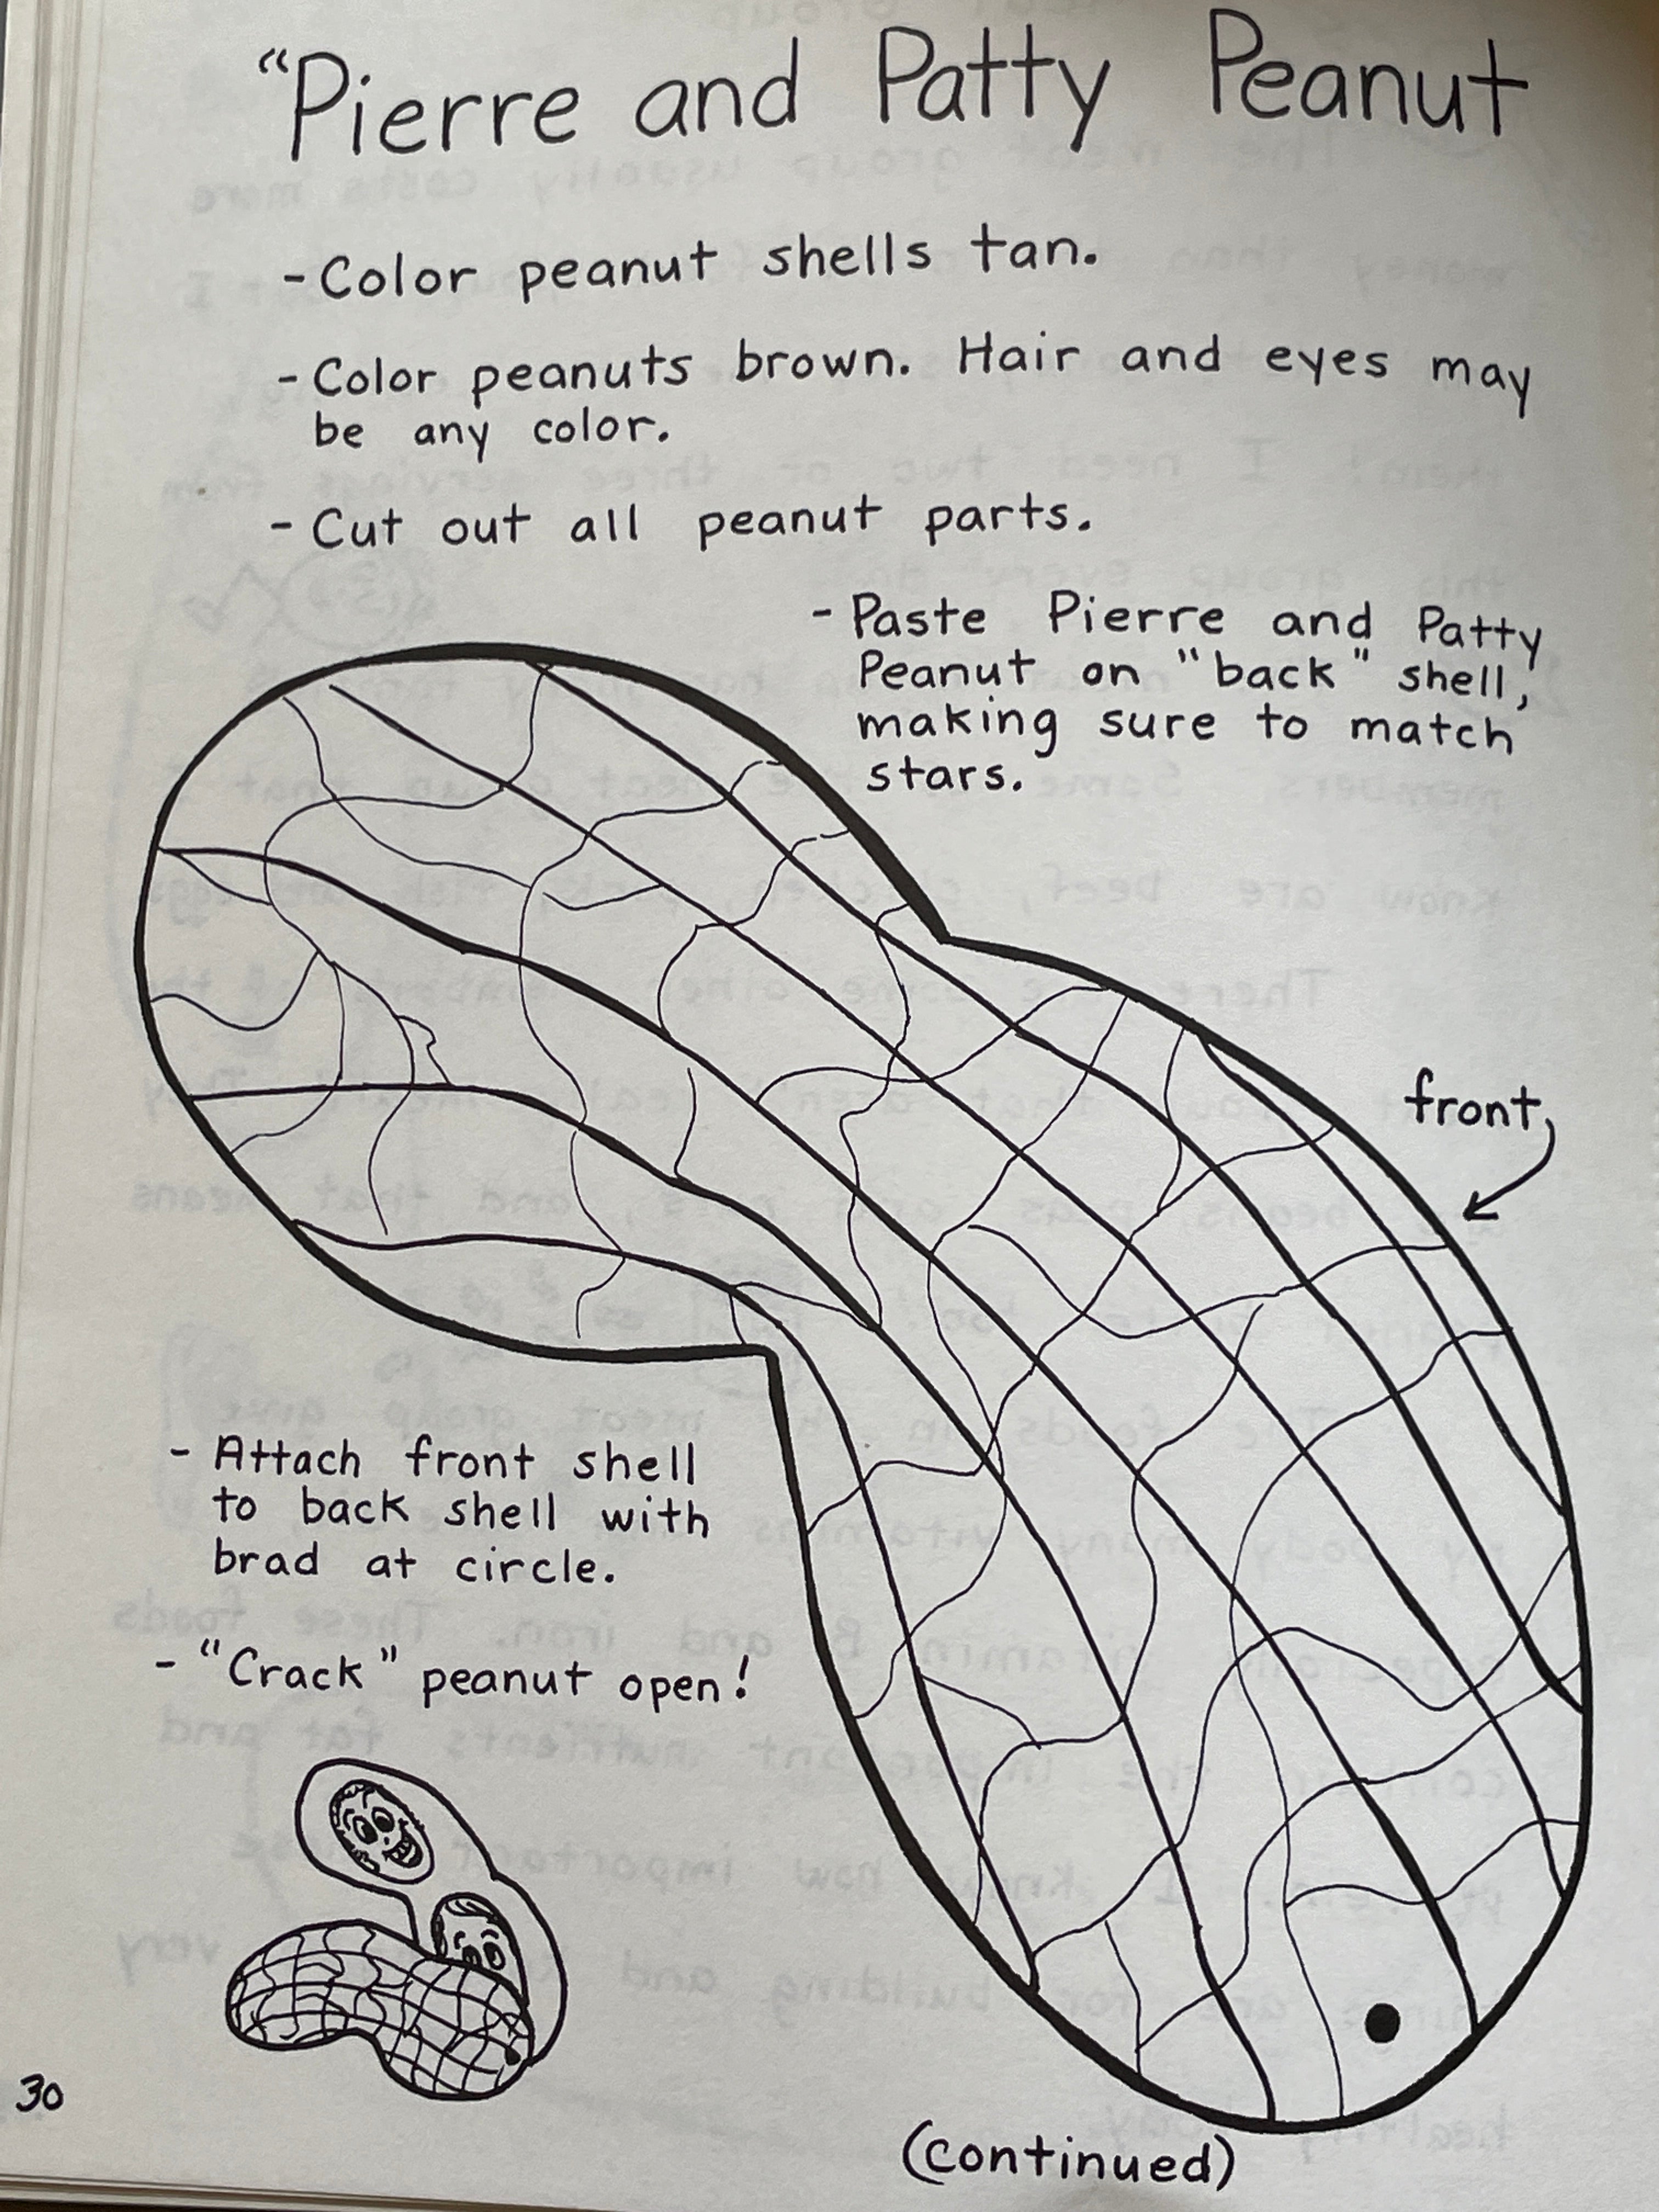 "Pierre and Patty Peanut
- Color peanut shells tan.
- Color peanuts brown. Hair and eyes may
be any color.
- Cut out all peanut parts.
- Paste Pierre and Patty
Peanut on "back" shell,
making sure to match
stars.
front
- Attach front shell
to back shell with
brad at circle.
- "Crack" peanut open!
30
(continued)